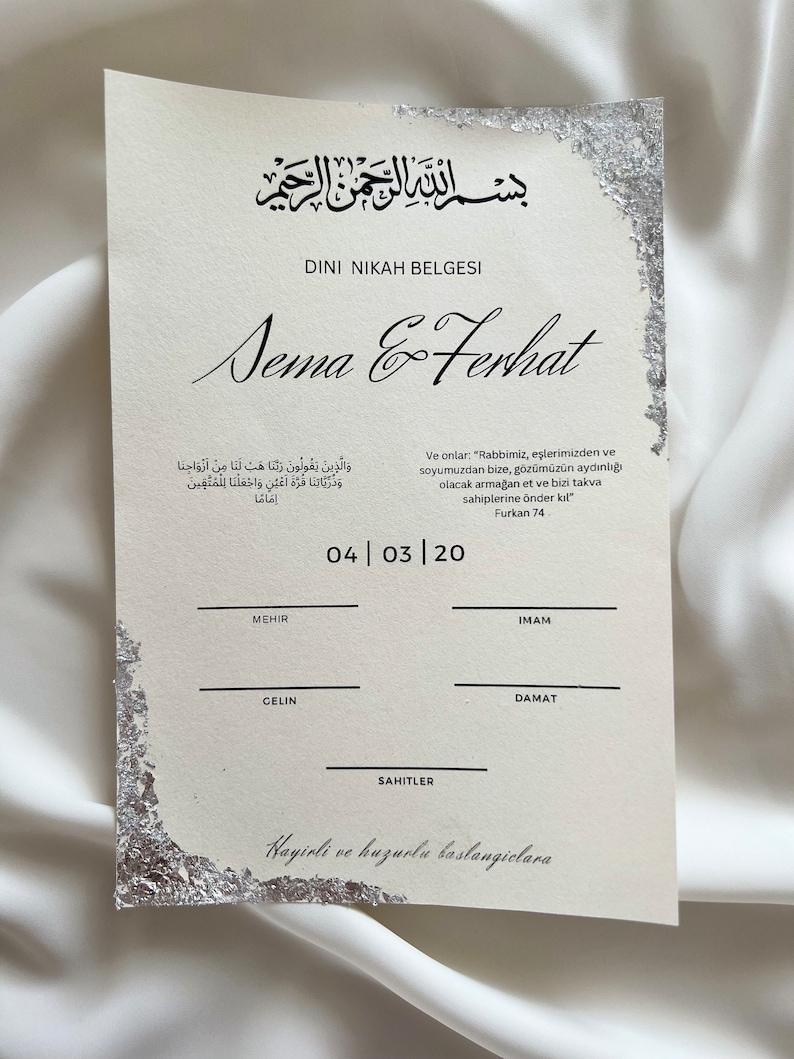 بسم الله الرحمن الرحيم
DINI NIKAH BELGESI
Sema & Ferhat
وَالَّذِينَ يَقُولُونَ رَبَّنَا هَبْ لَنَا مِنْ اَزْوَاجِنَا
وَذُرِّيَّاتِنَا قُرَّةَ اَعْيُنٍ وَاجْعَلْنَا لِلْمُتَّقِينَ
اِمَامًا
Ve onlar: “Rabbimiz, eşlerimizden ve
soyumuzdan bize, gözümüzün aydınlığı
olacak armağan et ve bizi takva
sahiplerine önder kıl”
Furkan 74
04 | 03 | 20
MEHIR
IMAM
GELIN
DAMAT
SAHITLER
Hayirli ve huzurlu baslangiclara